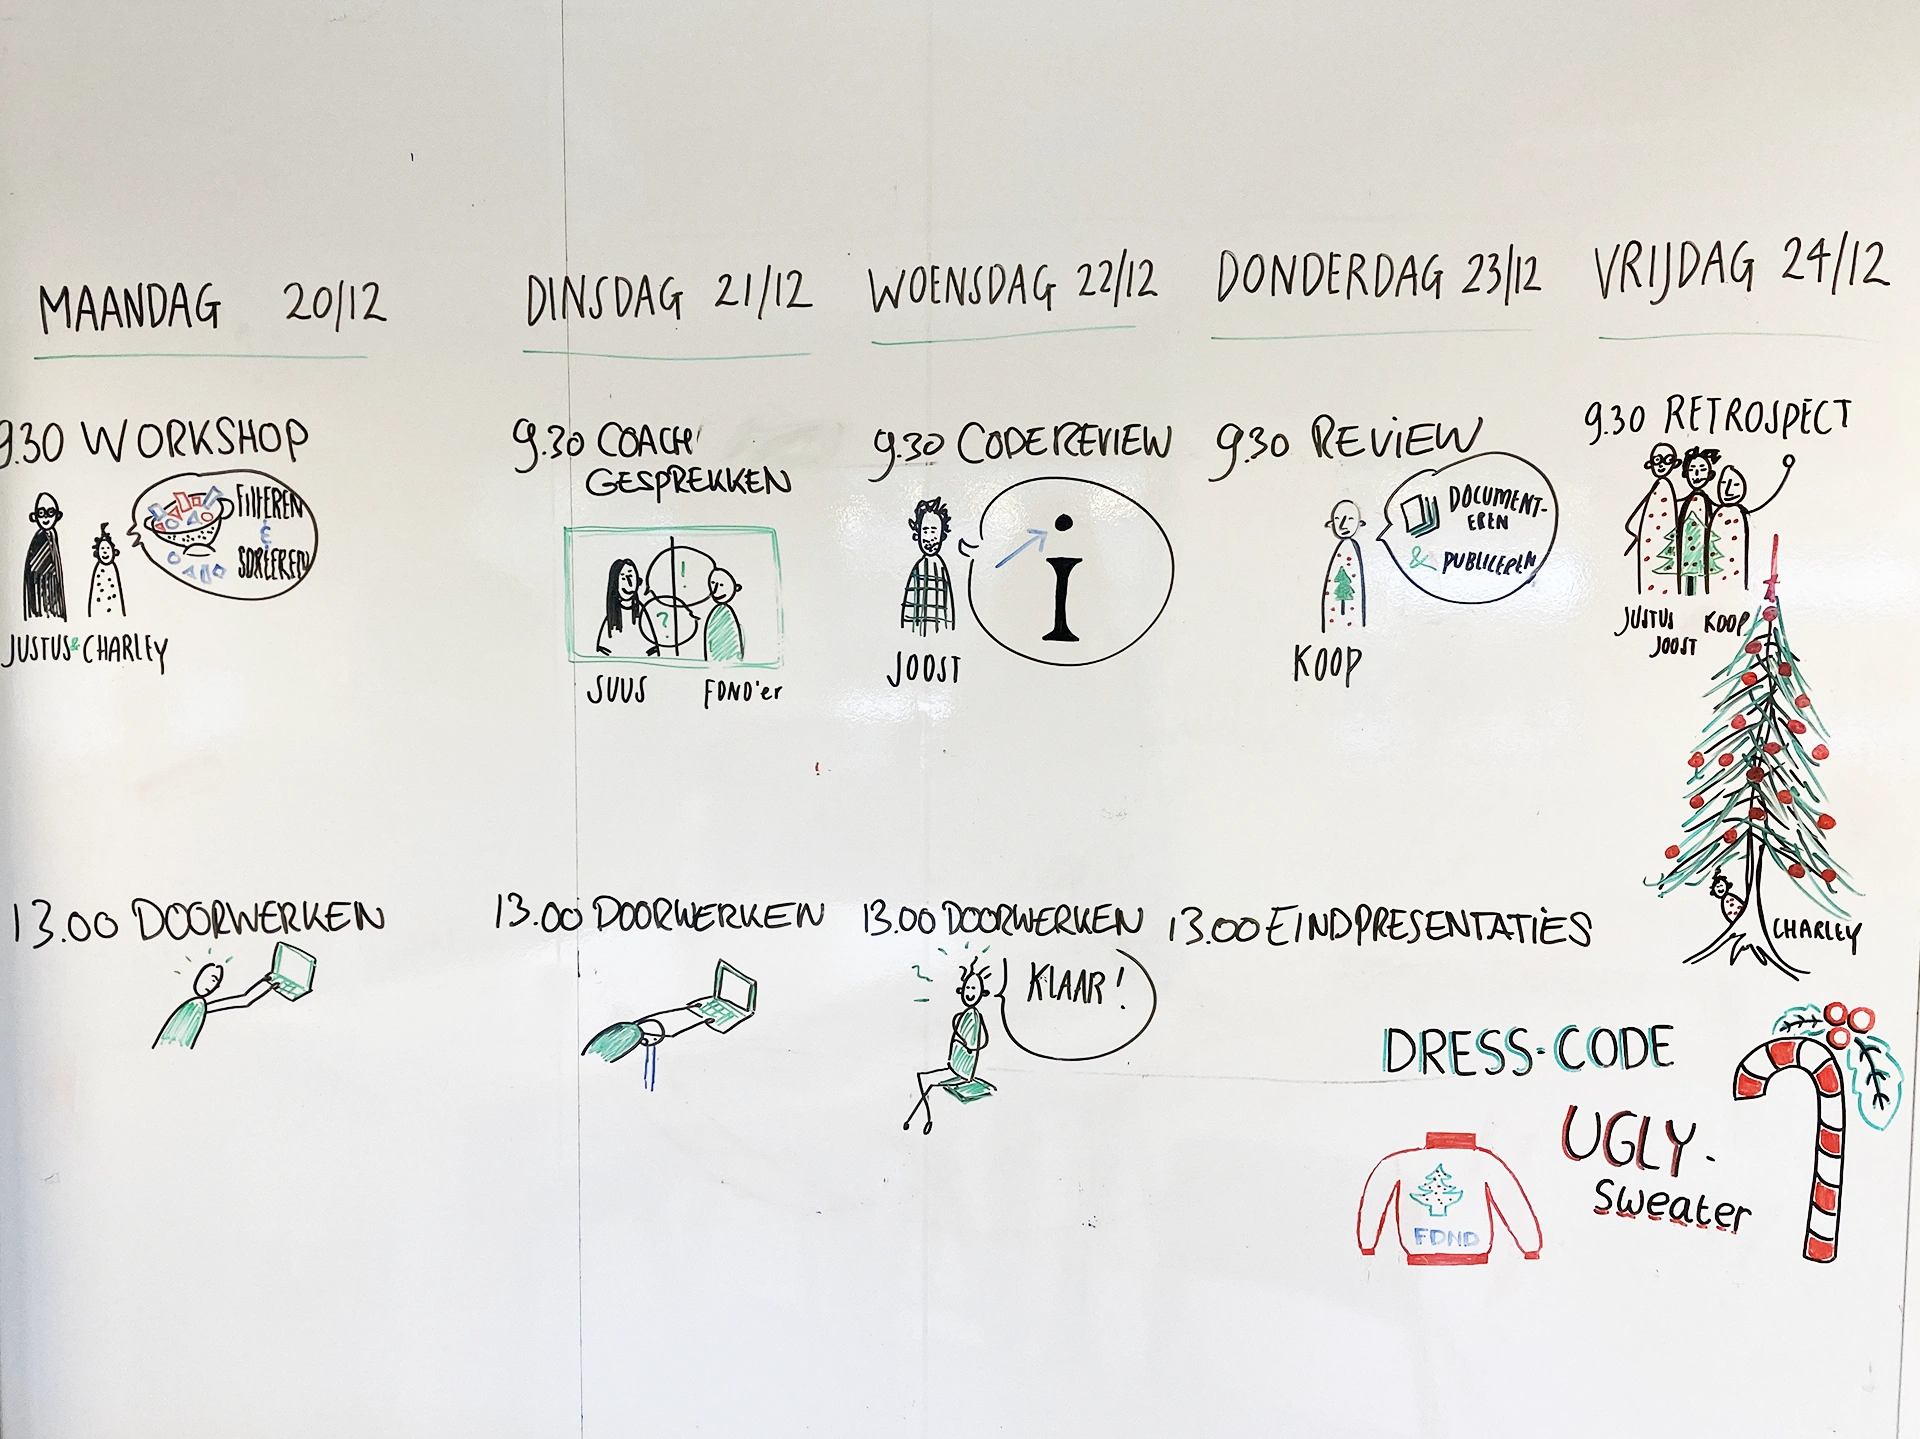 MAANDAG 20/12
9.30 WORKSHOP
FILTEREN
&
SORTEREN
JUSTUS & CHARLEY
13.00 DOORWERKEN
DINSDAG 21/12
9.30 COACH
GESPREKKEN
!
?
SUUS FDND'er
13.00 DOORWERKEN
WOENSDAG 22/12
9.30 CODEREVIEW
i
JOOST
13.00 DOORWERKEN
KLAAR!
DONDERDAG 23/12
9.30 REVIEW
DOCUMENT-
EREN
& PUBLICEREN
KOOP
13.00 EINDPRESENTATIES
VRIJDAG 24/12
9.30 RETROSPECT
JUSTUS KOOP
JOOST
CHARLEY
DRESS-CODE
UGLY-
sweater
FDND